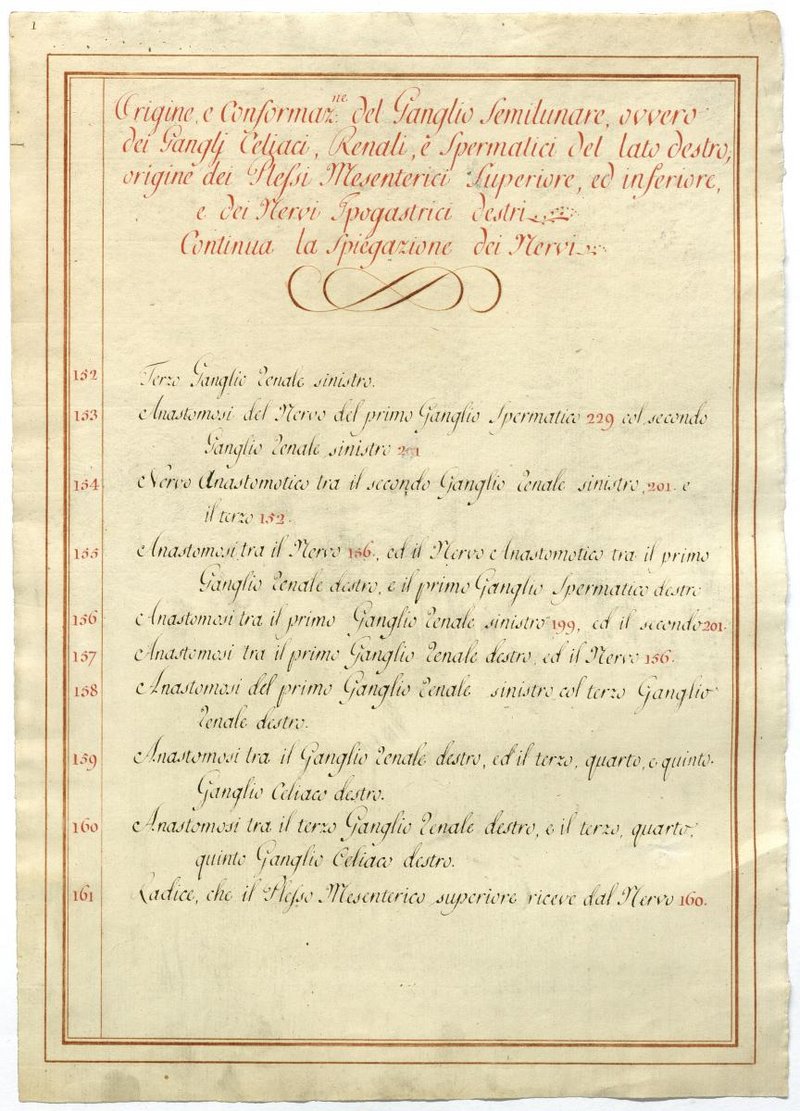 1
Origine, e Conformaz.ne del Ganglio Semilunare, ovvero
dei Ganglj Celiaci, Renali, e Spermatici del lato destro,
origine dei Plessi Mesenterici Superiore, ed inferiore,
e dei Nervi Ipogastrici destri
Continua la Spiegazione dei Nervi
152 Terzo Ganglio Renale sinistro.
153 Anastomosi del Nervo del primo Ganglio Spermatico 229 col secondo
Ganglio Renale sinistro 201
154 Nervo Anastomotico tra il secondo Ganglio Renale sinistro, 201. e
il terzo 152.
155 Anastomosi tra il Nervo 156., ed il Nervo Anastomotico tra il primo
Ganglio Renale destro, e il primo Ganglio Spermatico destro
156 Anastomosi tra il primo Ganglio Renale sinistro 199, ed il secondo 201.
157 Anastomosi tra il primo Ganglio Renale destro, ed il Nervo 156.
158 Anastomosi del primo Ganglio Renale sinistro col terzo Ganglio
Renale destro.
159 Anastomosi tra il Ganglio Renale destro, ed il terzo, quarto, e quinto.
Ganglio Celiaco destro.
160 Anastomosi tra il terzo Ganglio Renale destro, e il terzo, quarto,
quinto Ganglio Celiaco destro.
161 Radice, che il Plesso Mesenterico superiore riceve dal Nervo 160.